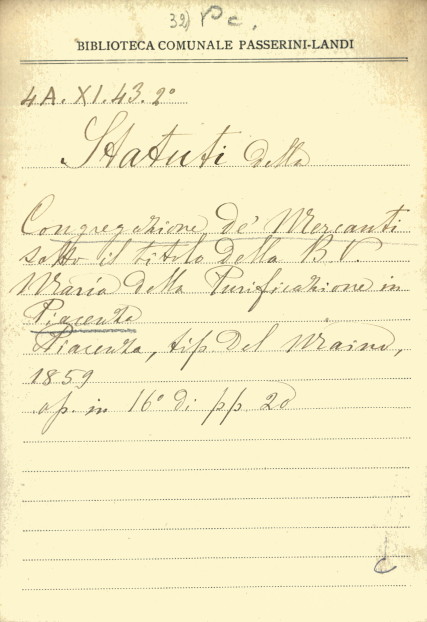 32) Pc.
BIBLIOTECA COMUNALE PASSERINI-LANDI
4A. XI. 43. 2º
Statuti della
Congregazione de' Mercanti
sotto il titolo della B. V.
Maria della Purificazione in
Piacenza
Piacenza, tip. Del Maino,
1859
op. in 16º di pp 20
C